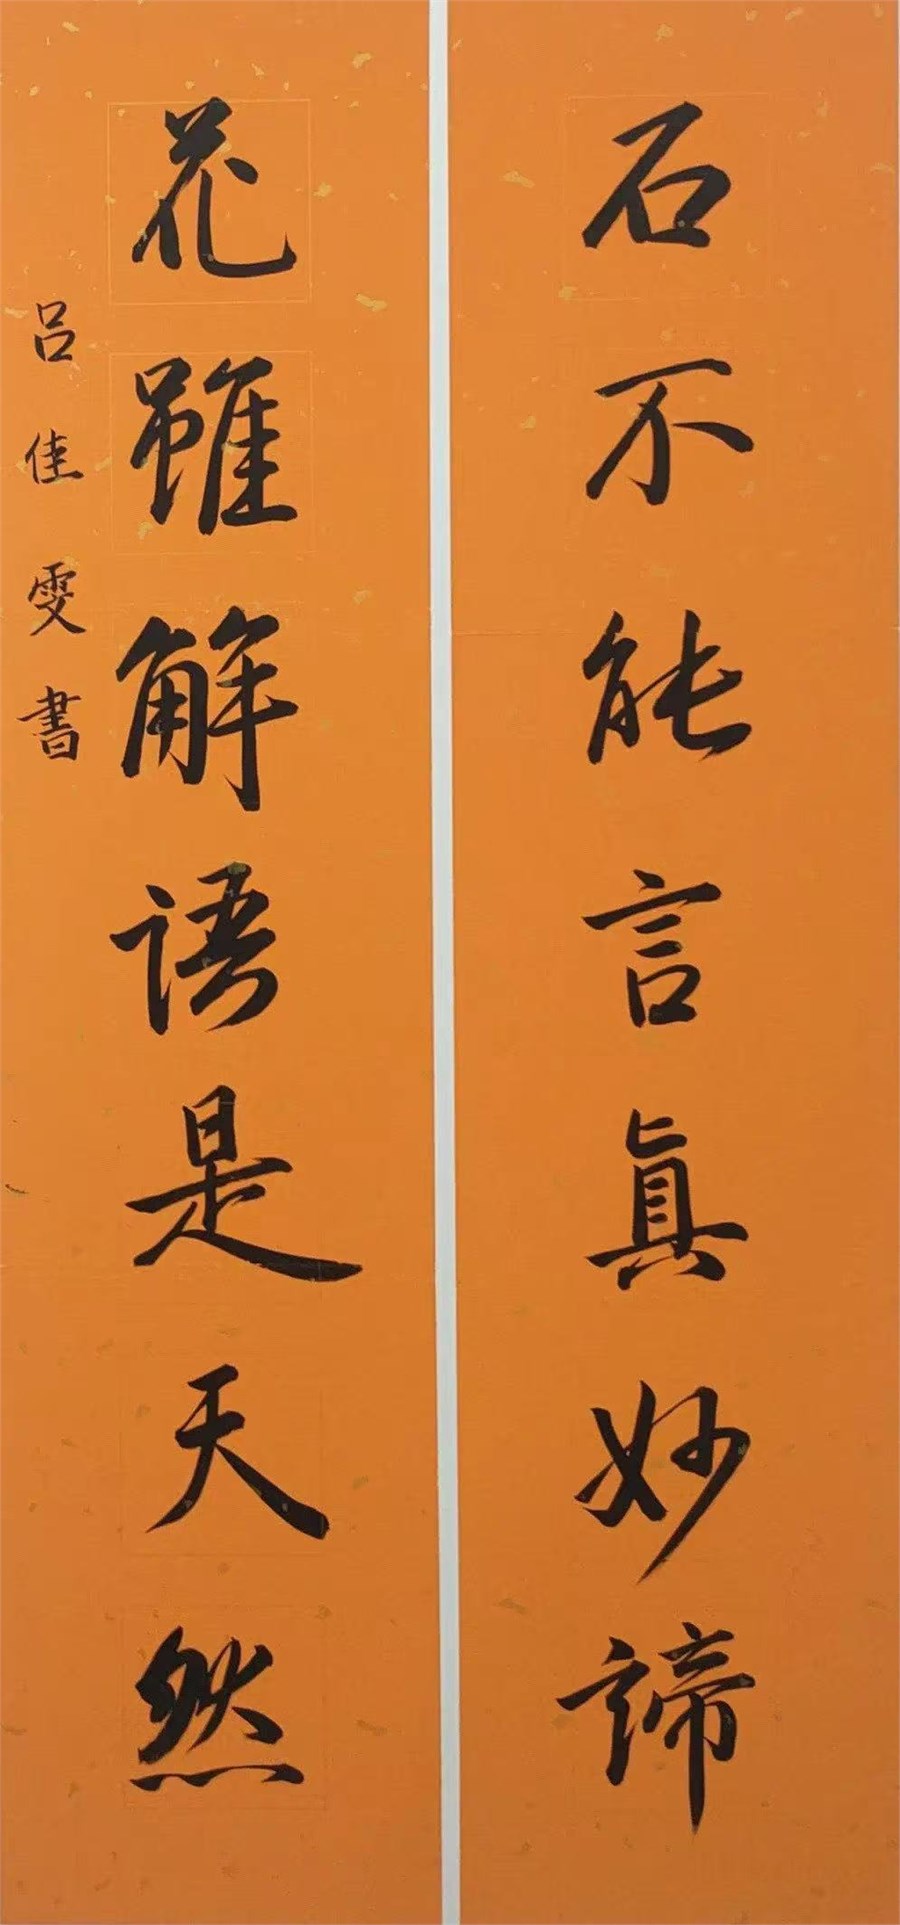 石不能言真妙諦
花雖解语是天然
吕佳雯書